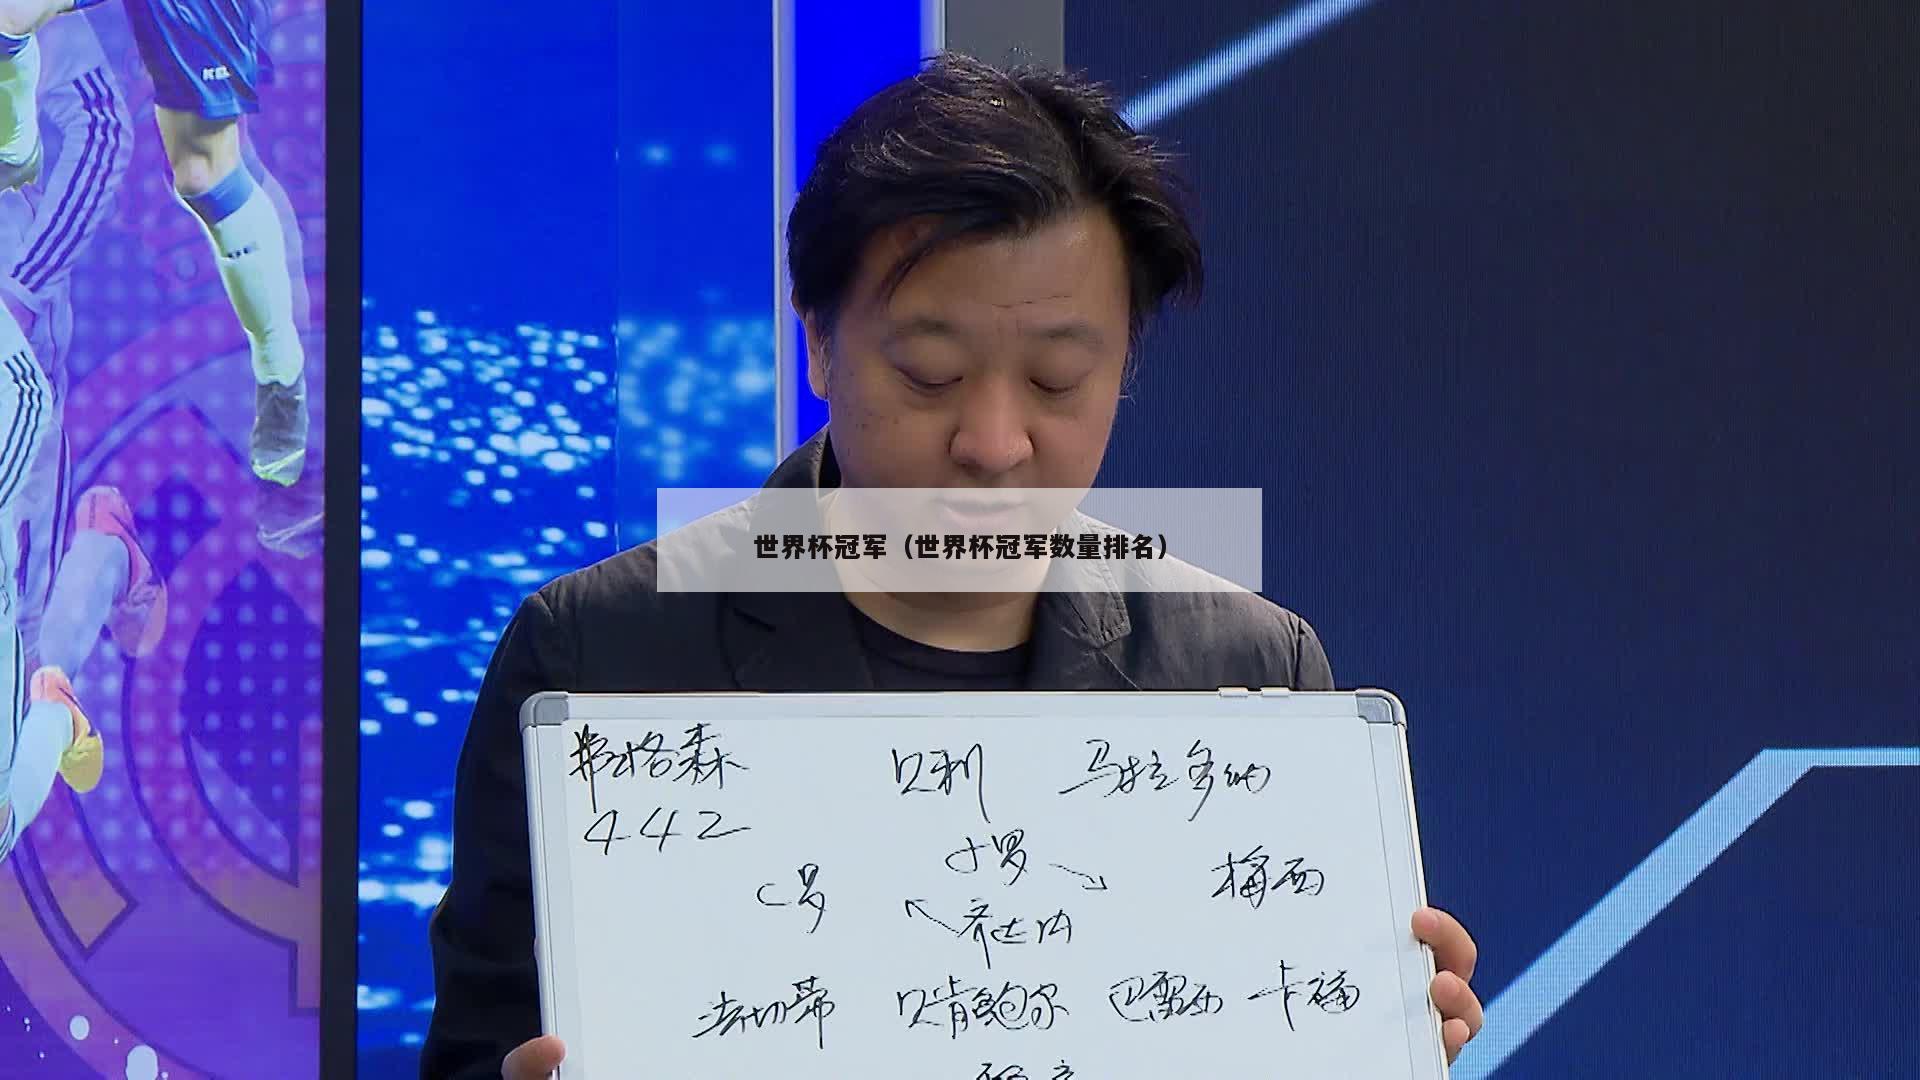 世界杯冠军（世界杯冠军数量排名）
弗格森 贝利 马拉多纳
442
小罗
C罗 梅西
齐达内
法切蒂 贝肯鲍尔 巴雷西 卡福